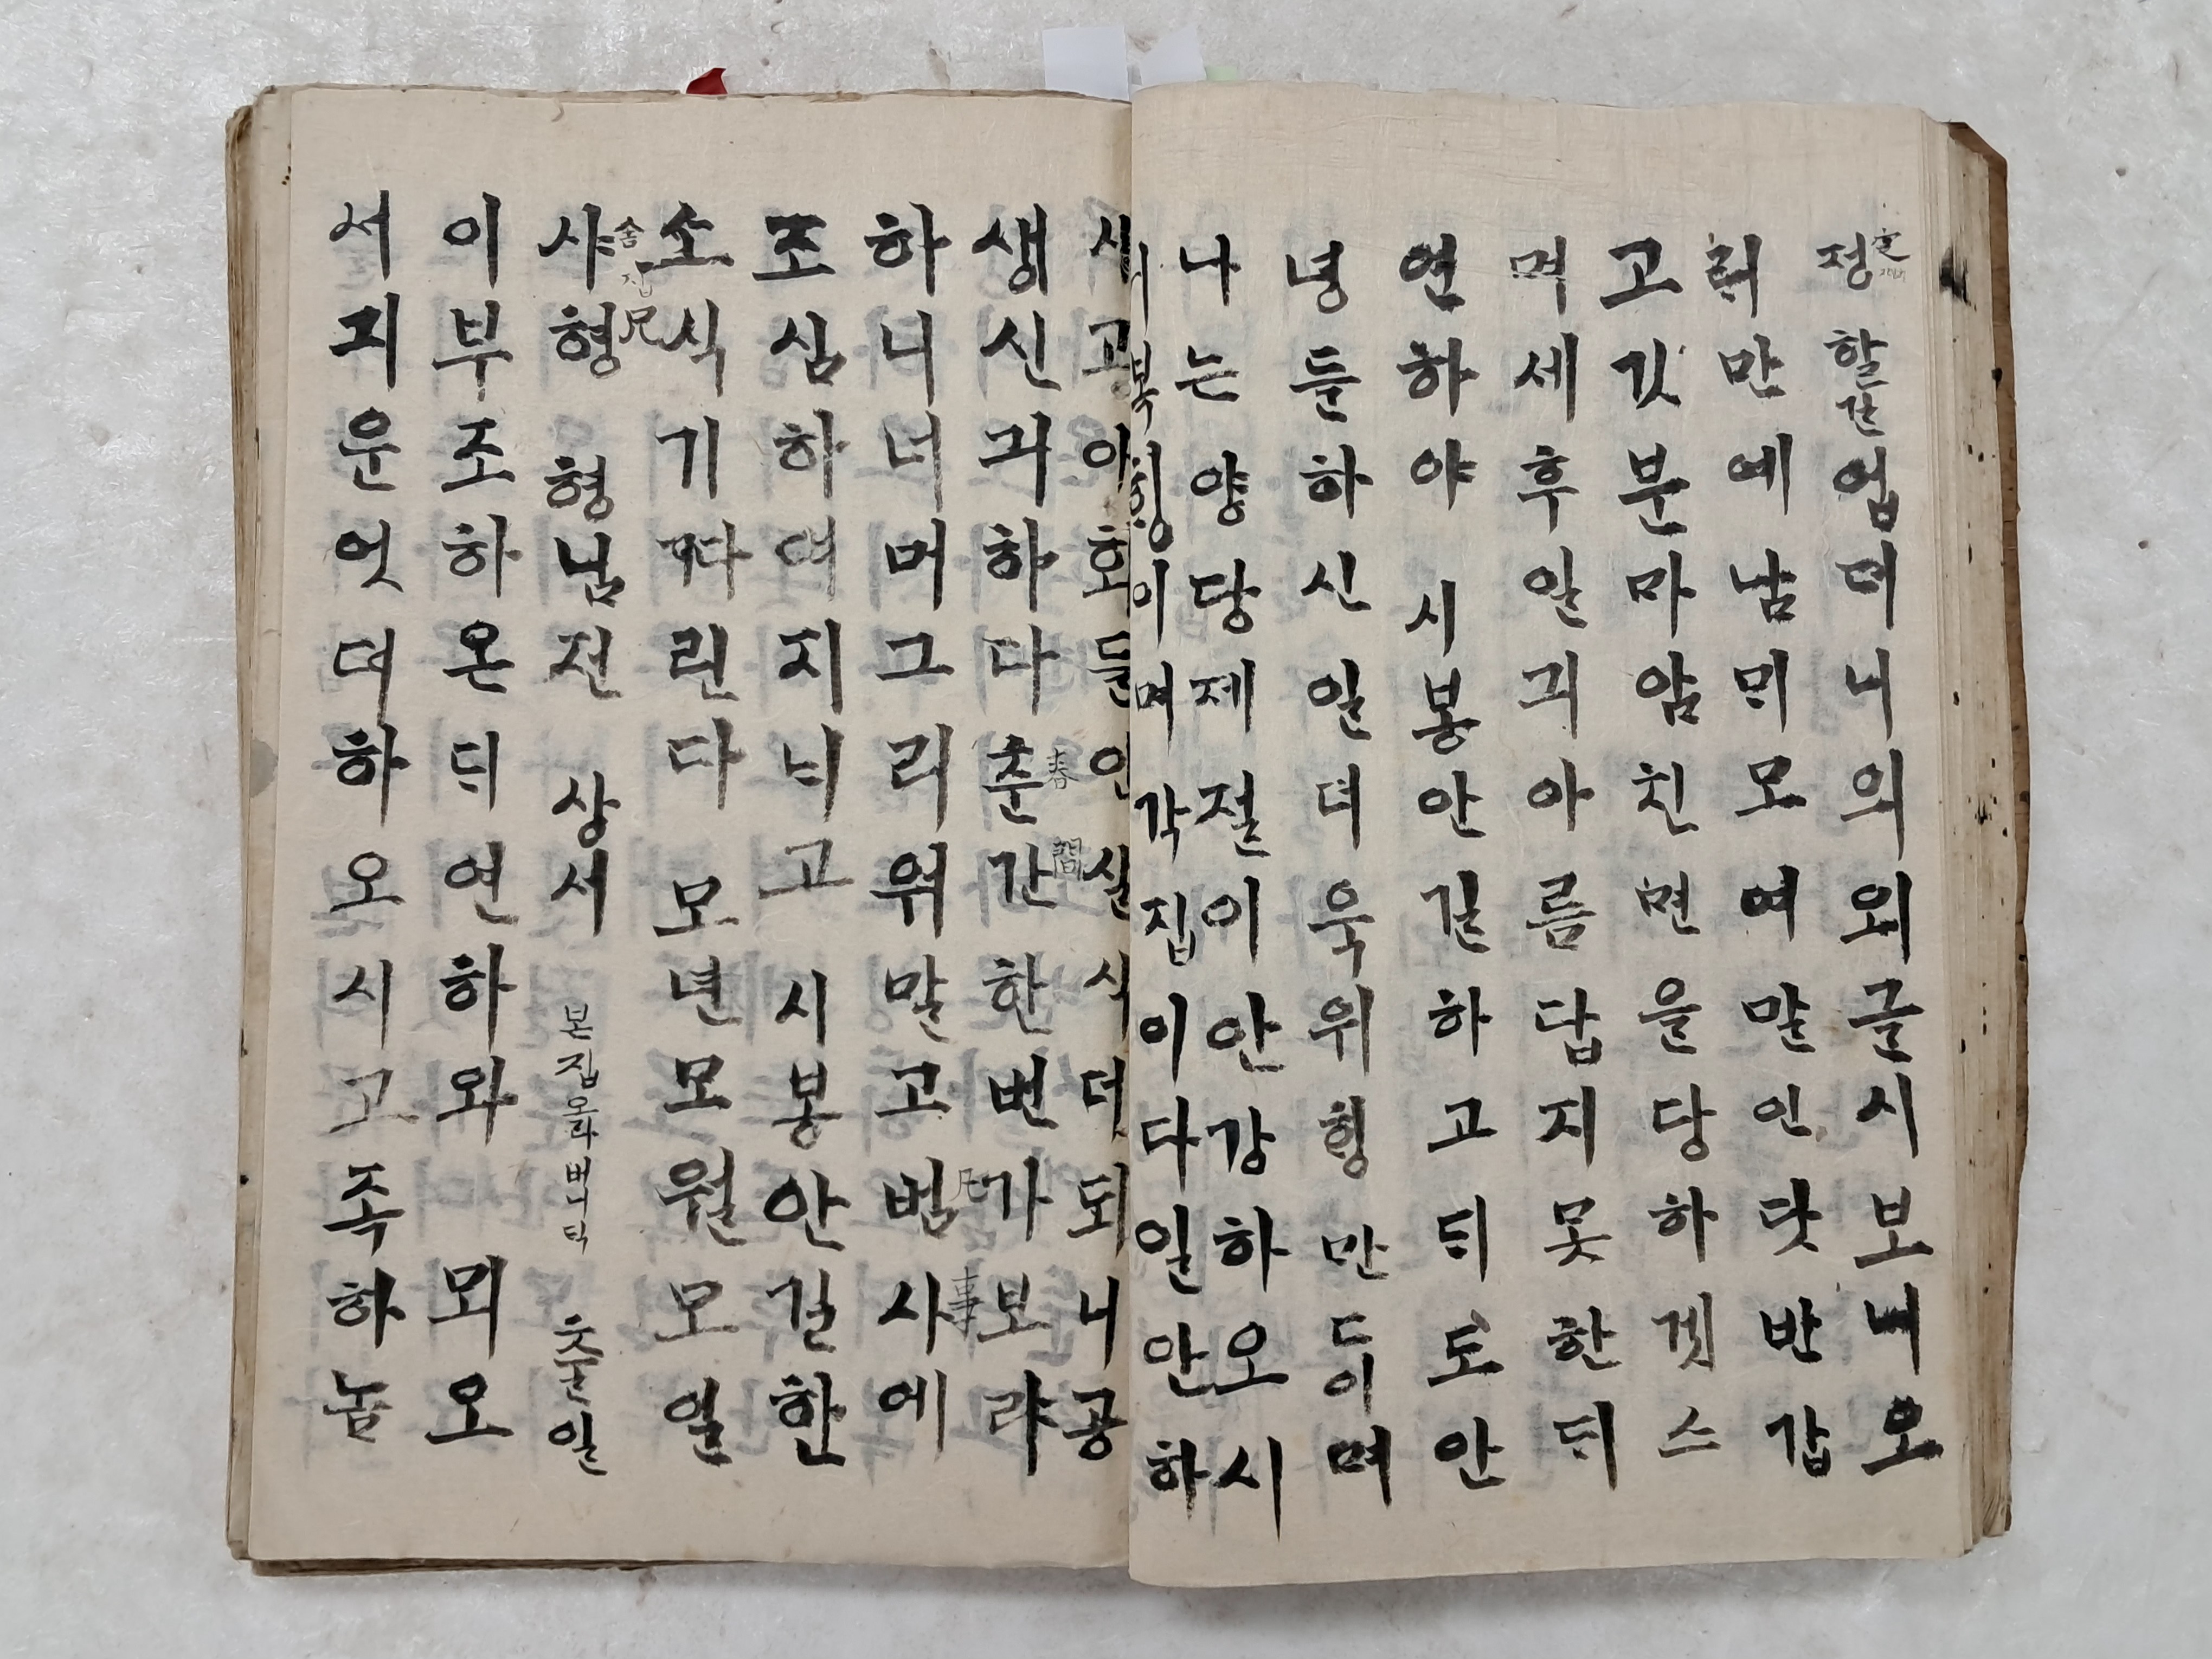 정할 길 업더니 의외 글시 보니 오
릭만에 남믜 모여 말인닷 반갑
고 깃분 마암 친면을 당하겟스
며 세후 일긔 아름답지 못한듸
연하야 시봉 안길하고 듸도 안
녕들 하신 일 더욱 위힝만등이며
나는 양당 제절이 안강하오시
니 복힝이며 각집이 다 일안하
시고 아호들인 실시더되니 공
생신긔하다 춘간 한번 가보랴
하니 너머 그리워 말고 범사에
조심하여 지늬고 시봉 안길한
소식 기다린다 모년 모월 모일
사형 형님 전 상서 본집 올라버니틱 춧일
이 부조하온듸 연하와 뫼오
서 지운 엇더하오시고 족하놈